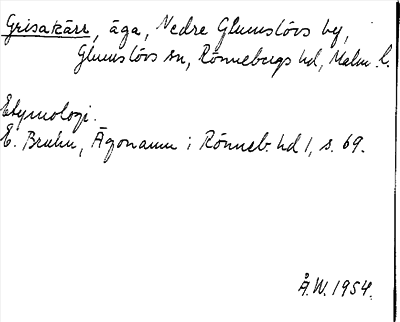 Grisakärr, äga, Nedre Glumslövs by,
Glumslövs sn, Rönnebergs hd, Malm. l.
Etymologi.
E. Bruhn, Ägonamn i Rönneb. hd 1, s. 69.
Å.W. 1954.